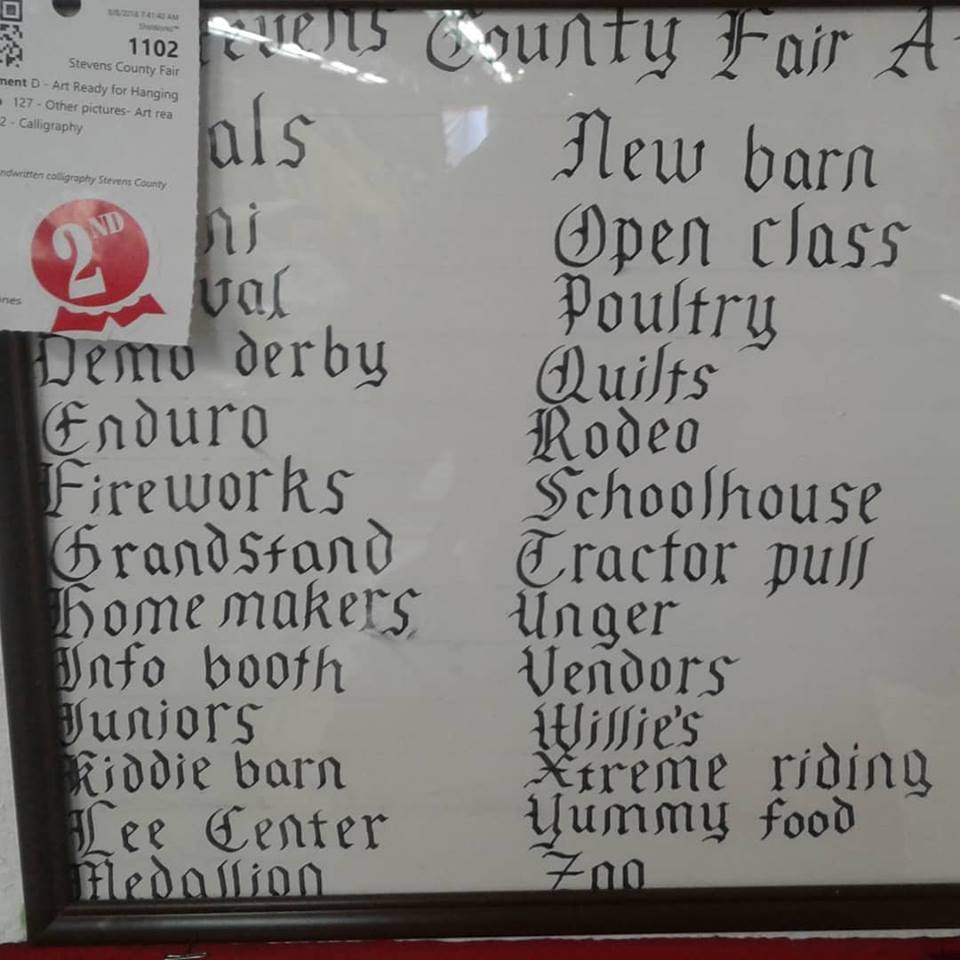 8/8/2018 7:41:40 AM
ShoWorks™
1102
Stevens County Fair
ment D - Art Ready for Hanging
127 - Other pictures- Art rea
2 - Calligraphy
ndwritten calligraphy Stevens County
2ND
nes
evens County Fair A-
als
ni
val
Demo derby
Enduro
Fireworks
Grandstand
Home makers
Info booth
Juniors
Kiddie barn
Lee Center
Medallion
New barn
Open class
Poultry
Quilts
Rodeo
Schoolhouse
Tractor pull
Unger
Vendors
Willie's
Xtreme riding
Yummy food
Zoo